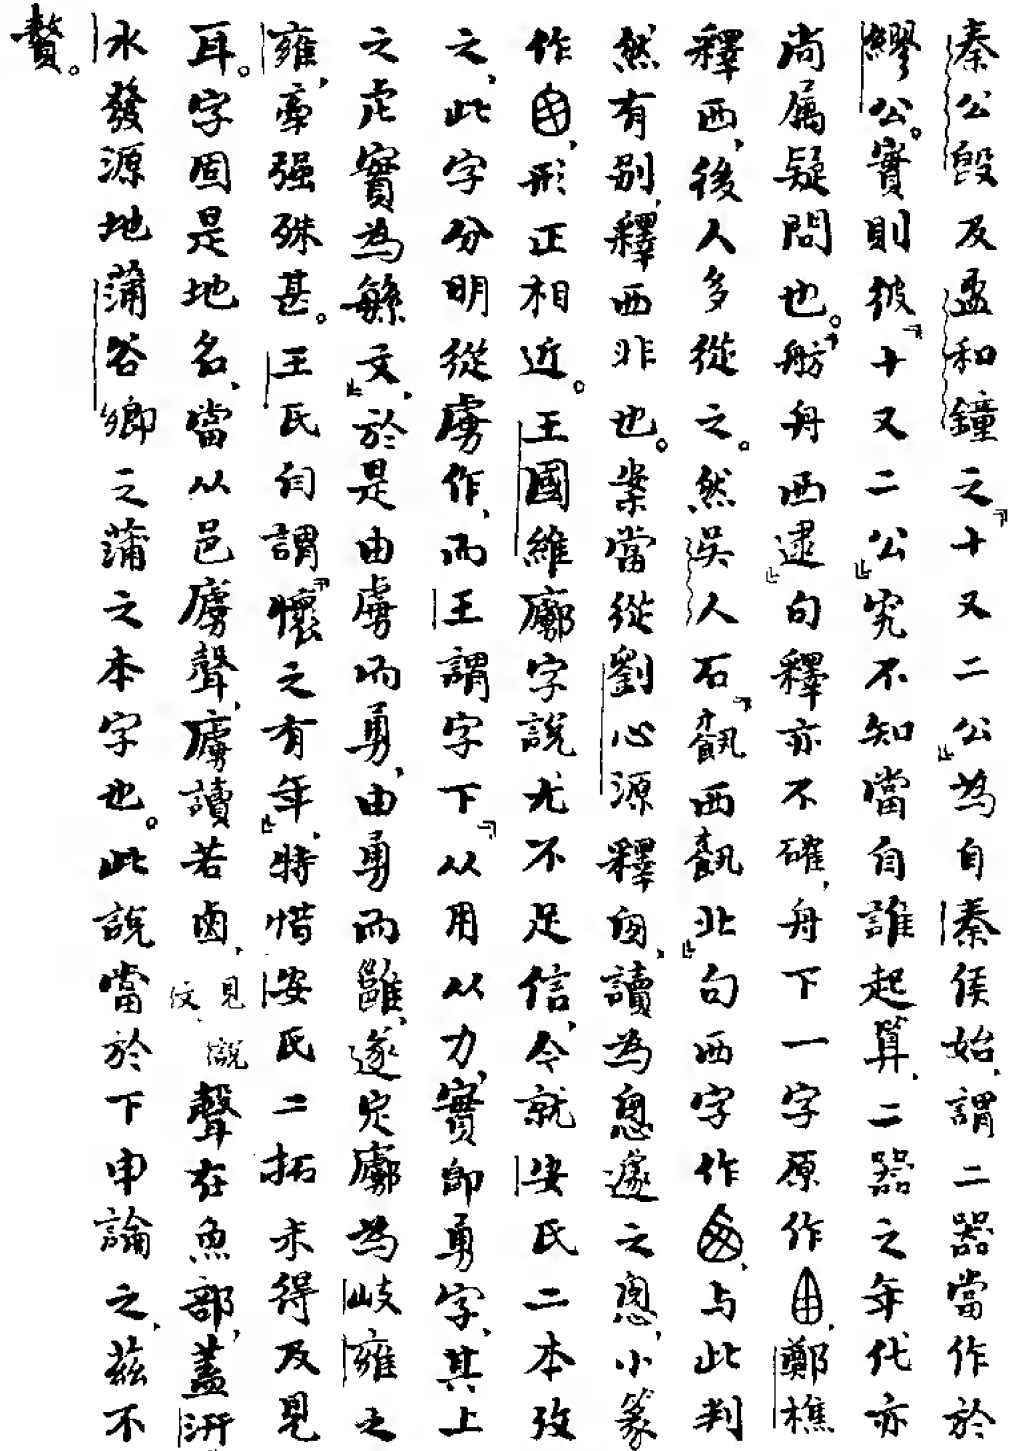 秦公𣪘及盄和鐘之『十又二公』為自秦侯始，謂二器當作於
繆公。實則彼『十又二公』究不知當自誰起算，二器之年代亦
尚屬疑問也。『舫舟西逮』句釋亦不確，舟下一字原作，鄭樵
釋西，後人多從之。然吳人石『翫西翫北』句西字作，与此判
然有别，釋西非也。案當從劉心源釋囱，讀為悤遽之悤，小篆
作囱，形正相近。王國維廓字說尤不足信，今就安氏二本攷
之，此字分明從虜作，而王謂字下『从用从力，實即勇字，其上
之虍實為緐文』，於是由虜而勇，由勇而雝，遂定廓為岐雍之
雍，牽强殊甚。王氏自謂『懷之有年』，特惜安氏二拓未得及見
耳。字固是地名，當从邑虜聲，虜讀若鹵，見說文聲在魚部，蓋汧
水發源地蒲谷鄉之蒲之本字也。此說當於下申論之，茲不
贅。